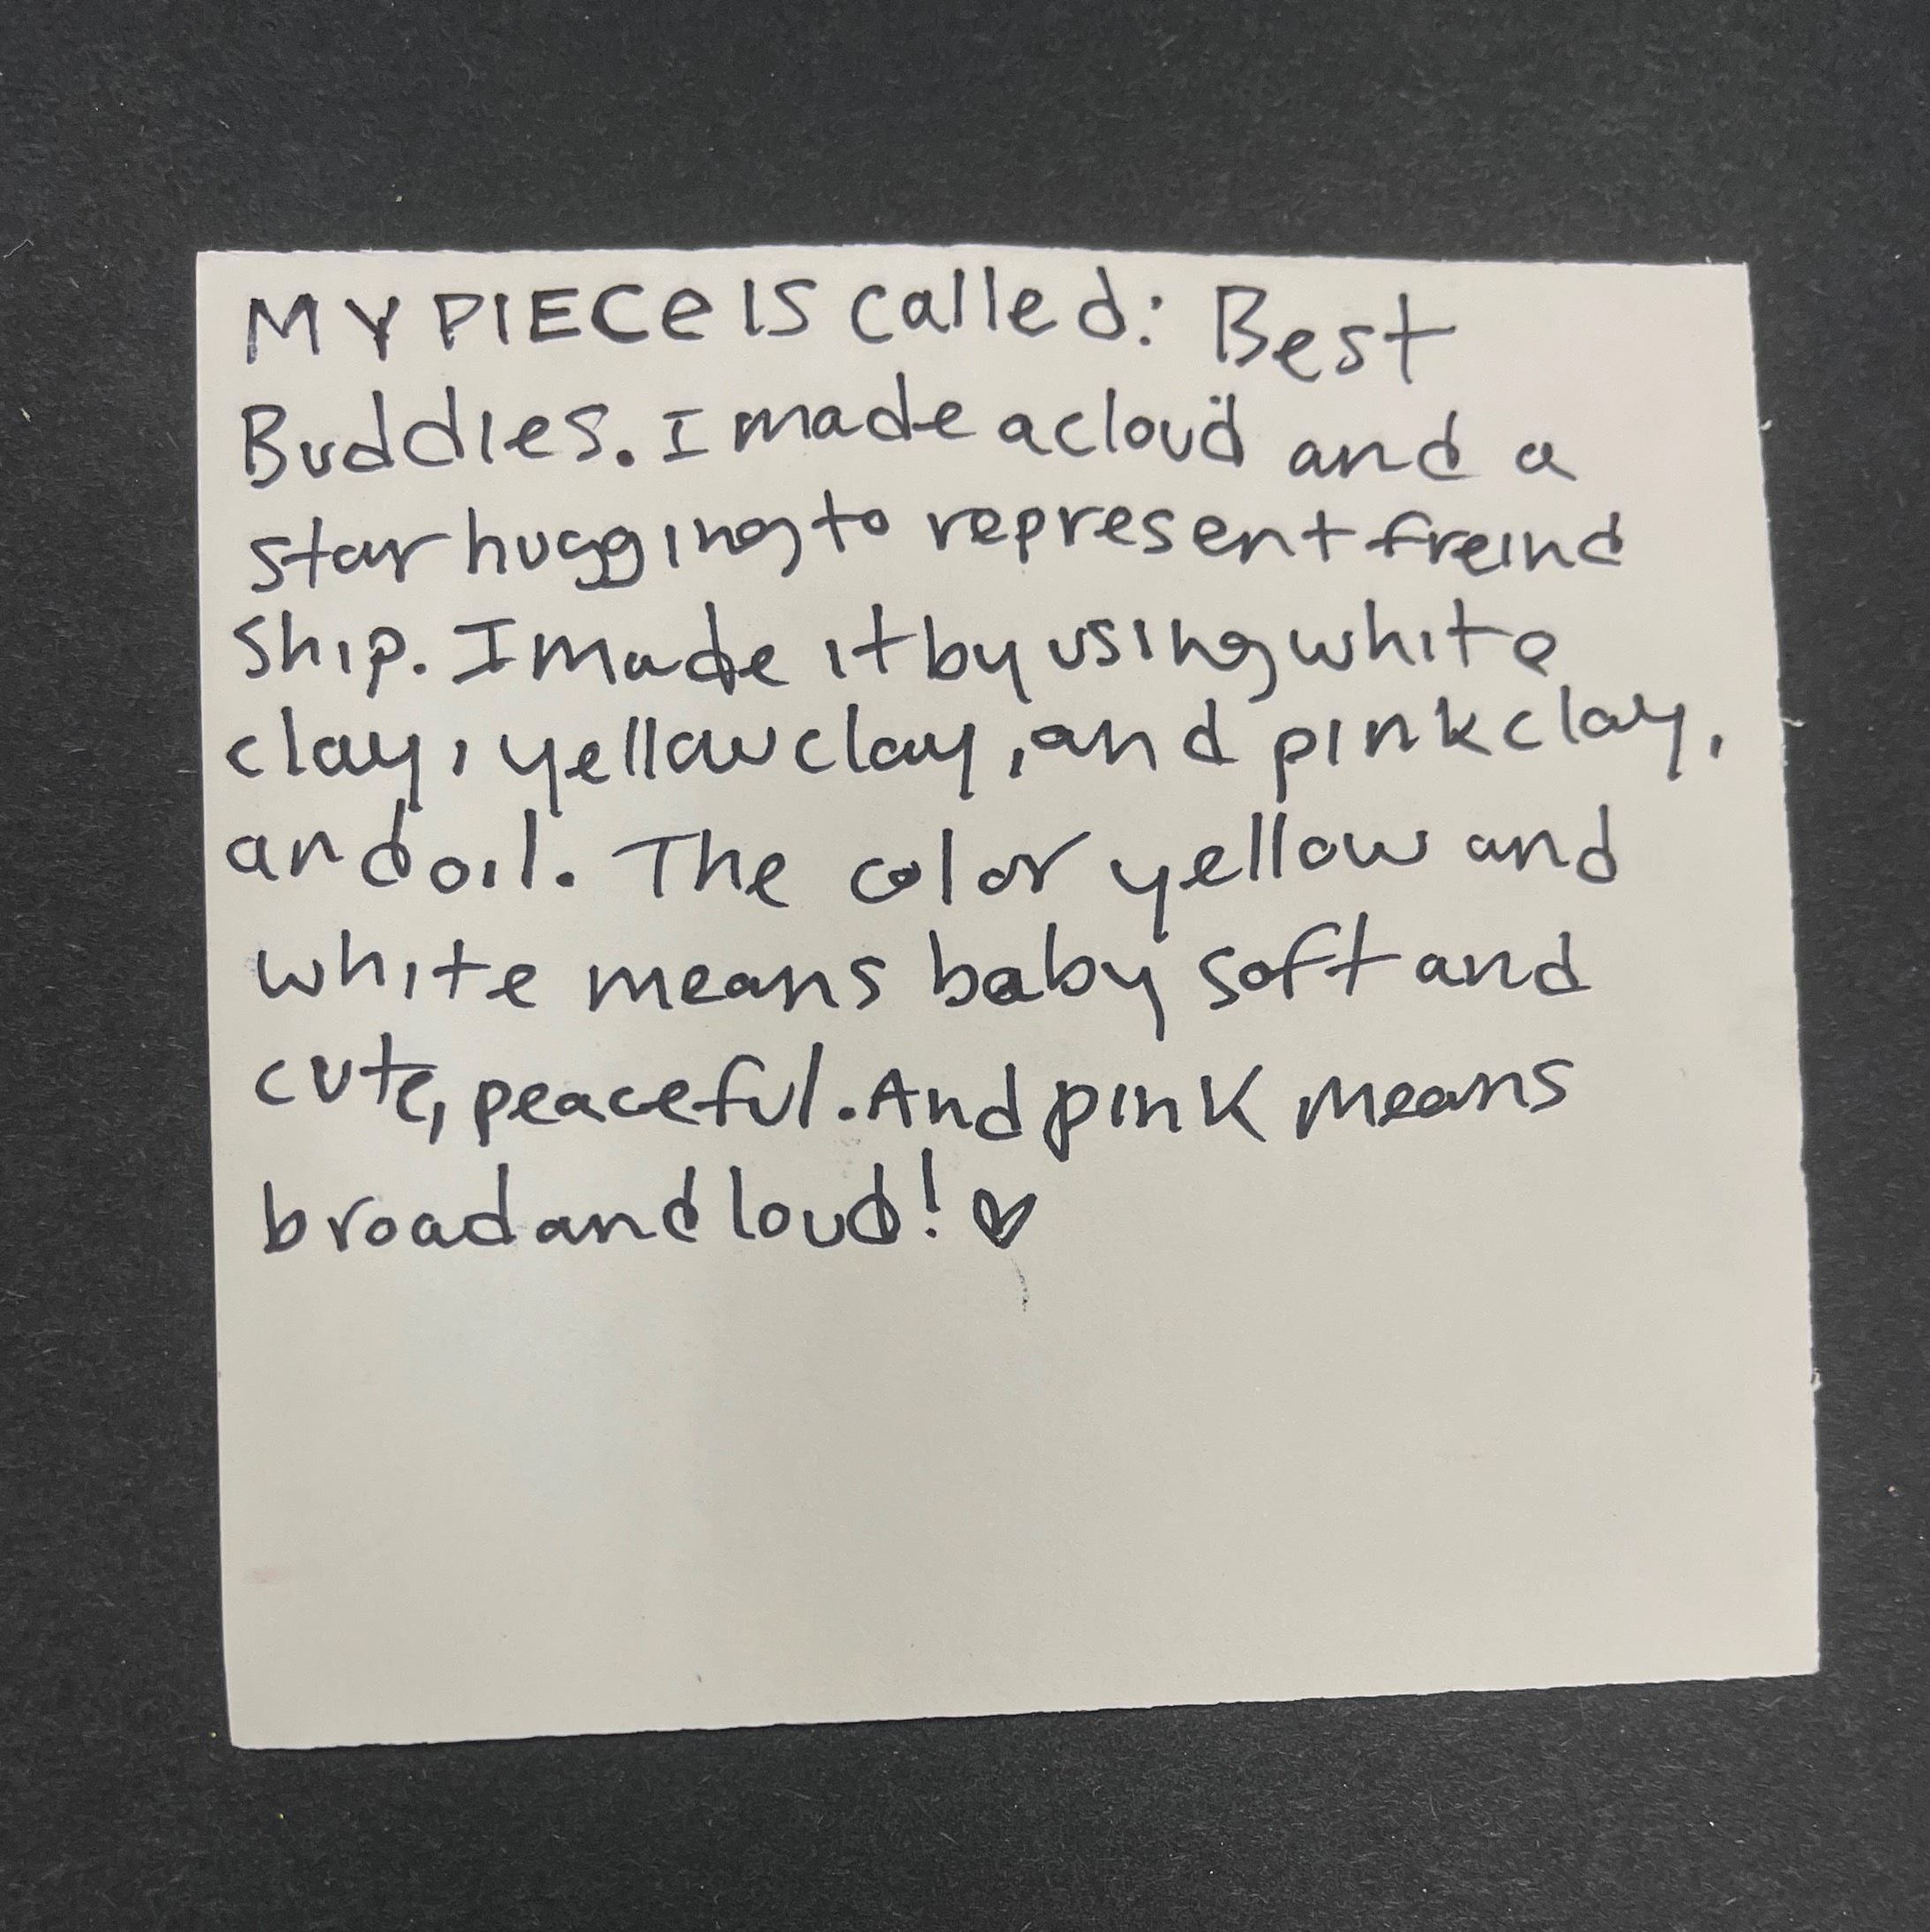 MY PIECe IS called: Best
Buddies. I made a cloud and a
star hugging to represent freind
ship. I made it by using white
clay, yellow clay, and pink clay,
and oil. The color yellow and
white means baby soft and
cute, peaceful. And pink means
broad and loud! ♡